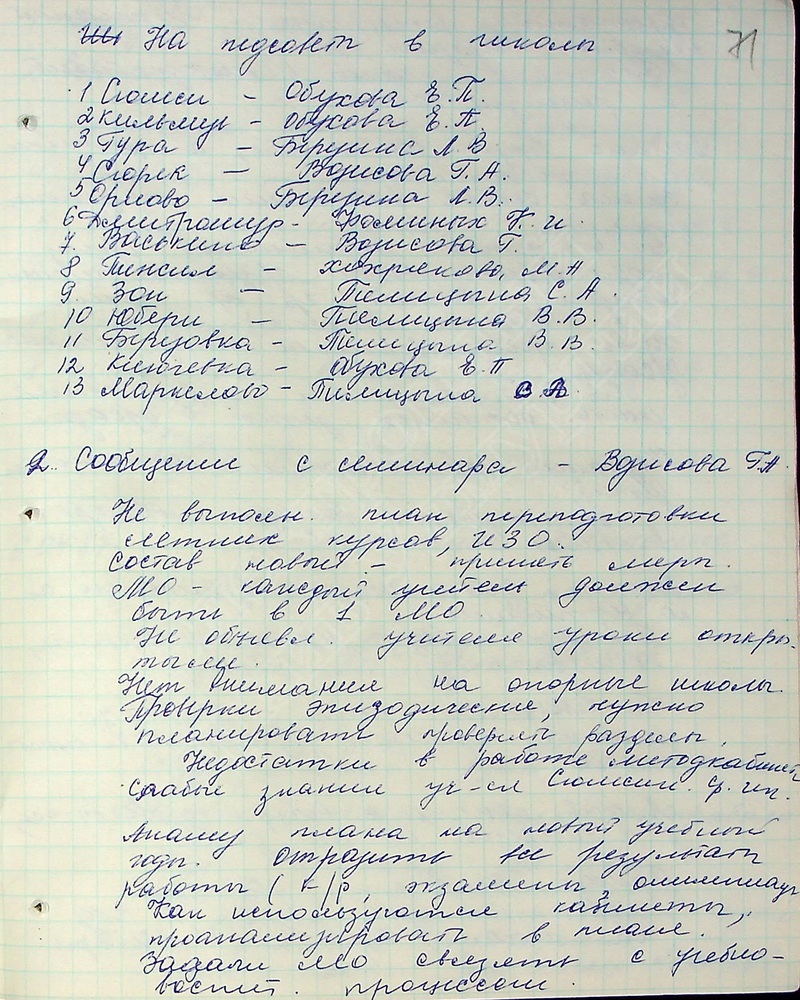 На педсовет в школы
71
1 Сюмси - Обухова Е.П.
2 Кильмезь - Обухова Е.П.
3 Гура - Березина Л.В.
4 Сюрек - Водисова Г.А.
5 Орлово - Березина Л.В.
6 Дмитрошур - Фоминых К.И.
7. Васькино - Водисова Г.
8 Пинсил - Хохрякова М А
9. Зон - Телицына С.А.
10 Юбери - Телицына В.В.
11 Березовка - Телицына В.В.
12 Ключевка - Обухова Е.П
13 Маркелово - Телицына В.А.
2. Сообщение с семинара - Водисова Г.А.
Не выполн. план переподготовки
летних курсов, ИЗО.
Состав новый - принять меры.
МО - каждый учитель должен
быть в 1 МО.
Не объявл. учителя уроки откры-
тыми.
Нет внимания на опорные школы.
Проверки эпизодические, нужно
планировать проверять разделы.
Недостатки в работе методкабинета
Слабые знания уч-ся Сюмсин. ср. шк.
Анализ плана на новый учебный
годы. Отразить все результаты
работы (к/р, экзамены, олимпиады
Как используются кабинеты,
проанализировать в плане.
Задачи МО связать с учебно-
воспит. процессом.